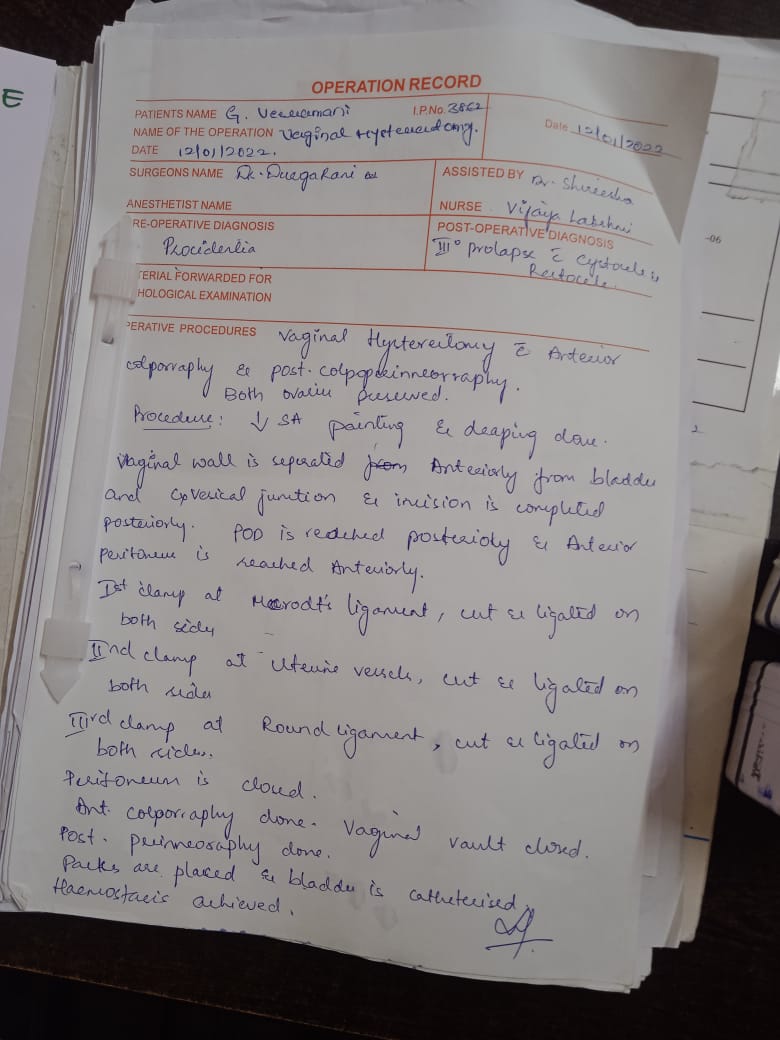 E
OPERATION RECORD
PATIENTS NAME G. Veeramani I.P.No. 3862
Date 12/01/2022
NAME OF THE OPERATION Vaginal Hysterectomy.
DATE 12/01/2022.
SURGEONS NAME Dr. DurgaRani
ASSISTED BY Dr. Shireesha
ANESTHETIST NAME
NURSE Vijaya Lakshmi
RE-OPERATIVE DIAGNOSIS
Procidentia
POST-OPERATIVE DIAGNOSIS
III° prolapse c̄ cystocele &
Rectocele.
TERIAL FORWARDED FOR
HOLOGICAL EXAMINATION
PERATIVE PROCEDURES Vaginal Hysterectomy c̄ Anterior
colporraphy & post. colpoperinneorraphy.
Both ovaries preserved.
Procedure: ↓ SA painting & draping done.
Vaginal wall is seperated from Anteriorly from bladder
and Cxvesical junction & incision is completed
posteriorly. POD is reached posterioly & Anterior
peritoneum is reached Anteriorly.
Ist clamp at ligament, cut & ligated on
both sides
IInd clamp at Uterine vessels, cut & ligated on
both sides
IIIrd clamp at Round ligament, cut & ligated on
both sides.
Peritoneum is closed.
Ant. colporraphy done. Vaginal vault closed.
Post. perinneoraphy done.
Packs are placed & bladder is catheterised.
Haemostasis achieved.
-06